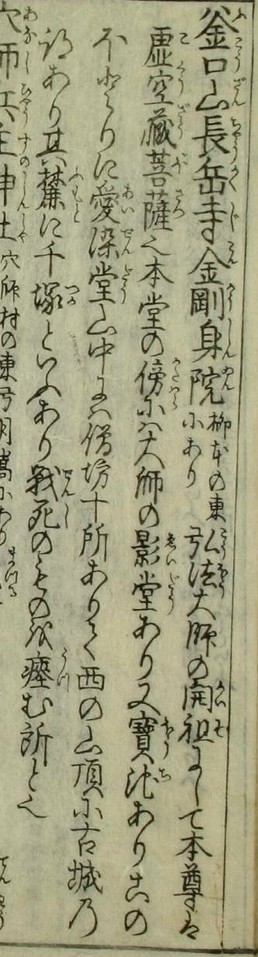 釜口山長岳寺金剛身院柳本の東にあり弘法大師の開祖にして本尊ハ
虚空蔵菩薩也本堂の傍にハ大師の影堂あり又寳池ありこの
ほとりに愛染堂山中にハ僧坊十所ありて西の山頂に古城乃
跡あり其麓に千塚といふあり戦死のものを瘞む所と也
穴師兵主神社穴師村の東弓月嵩にあり